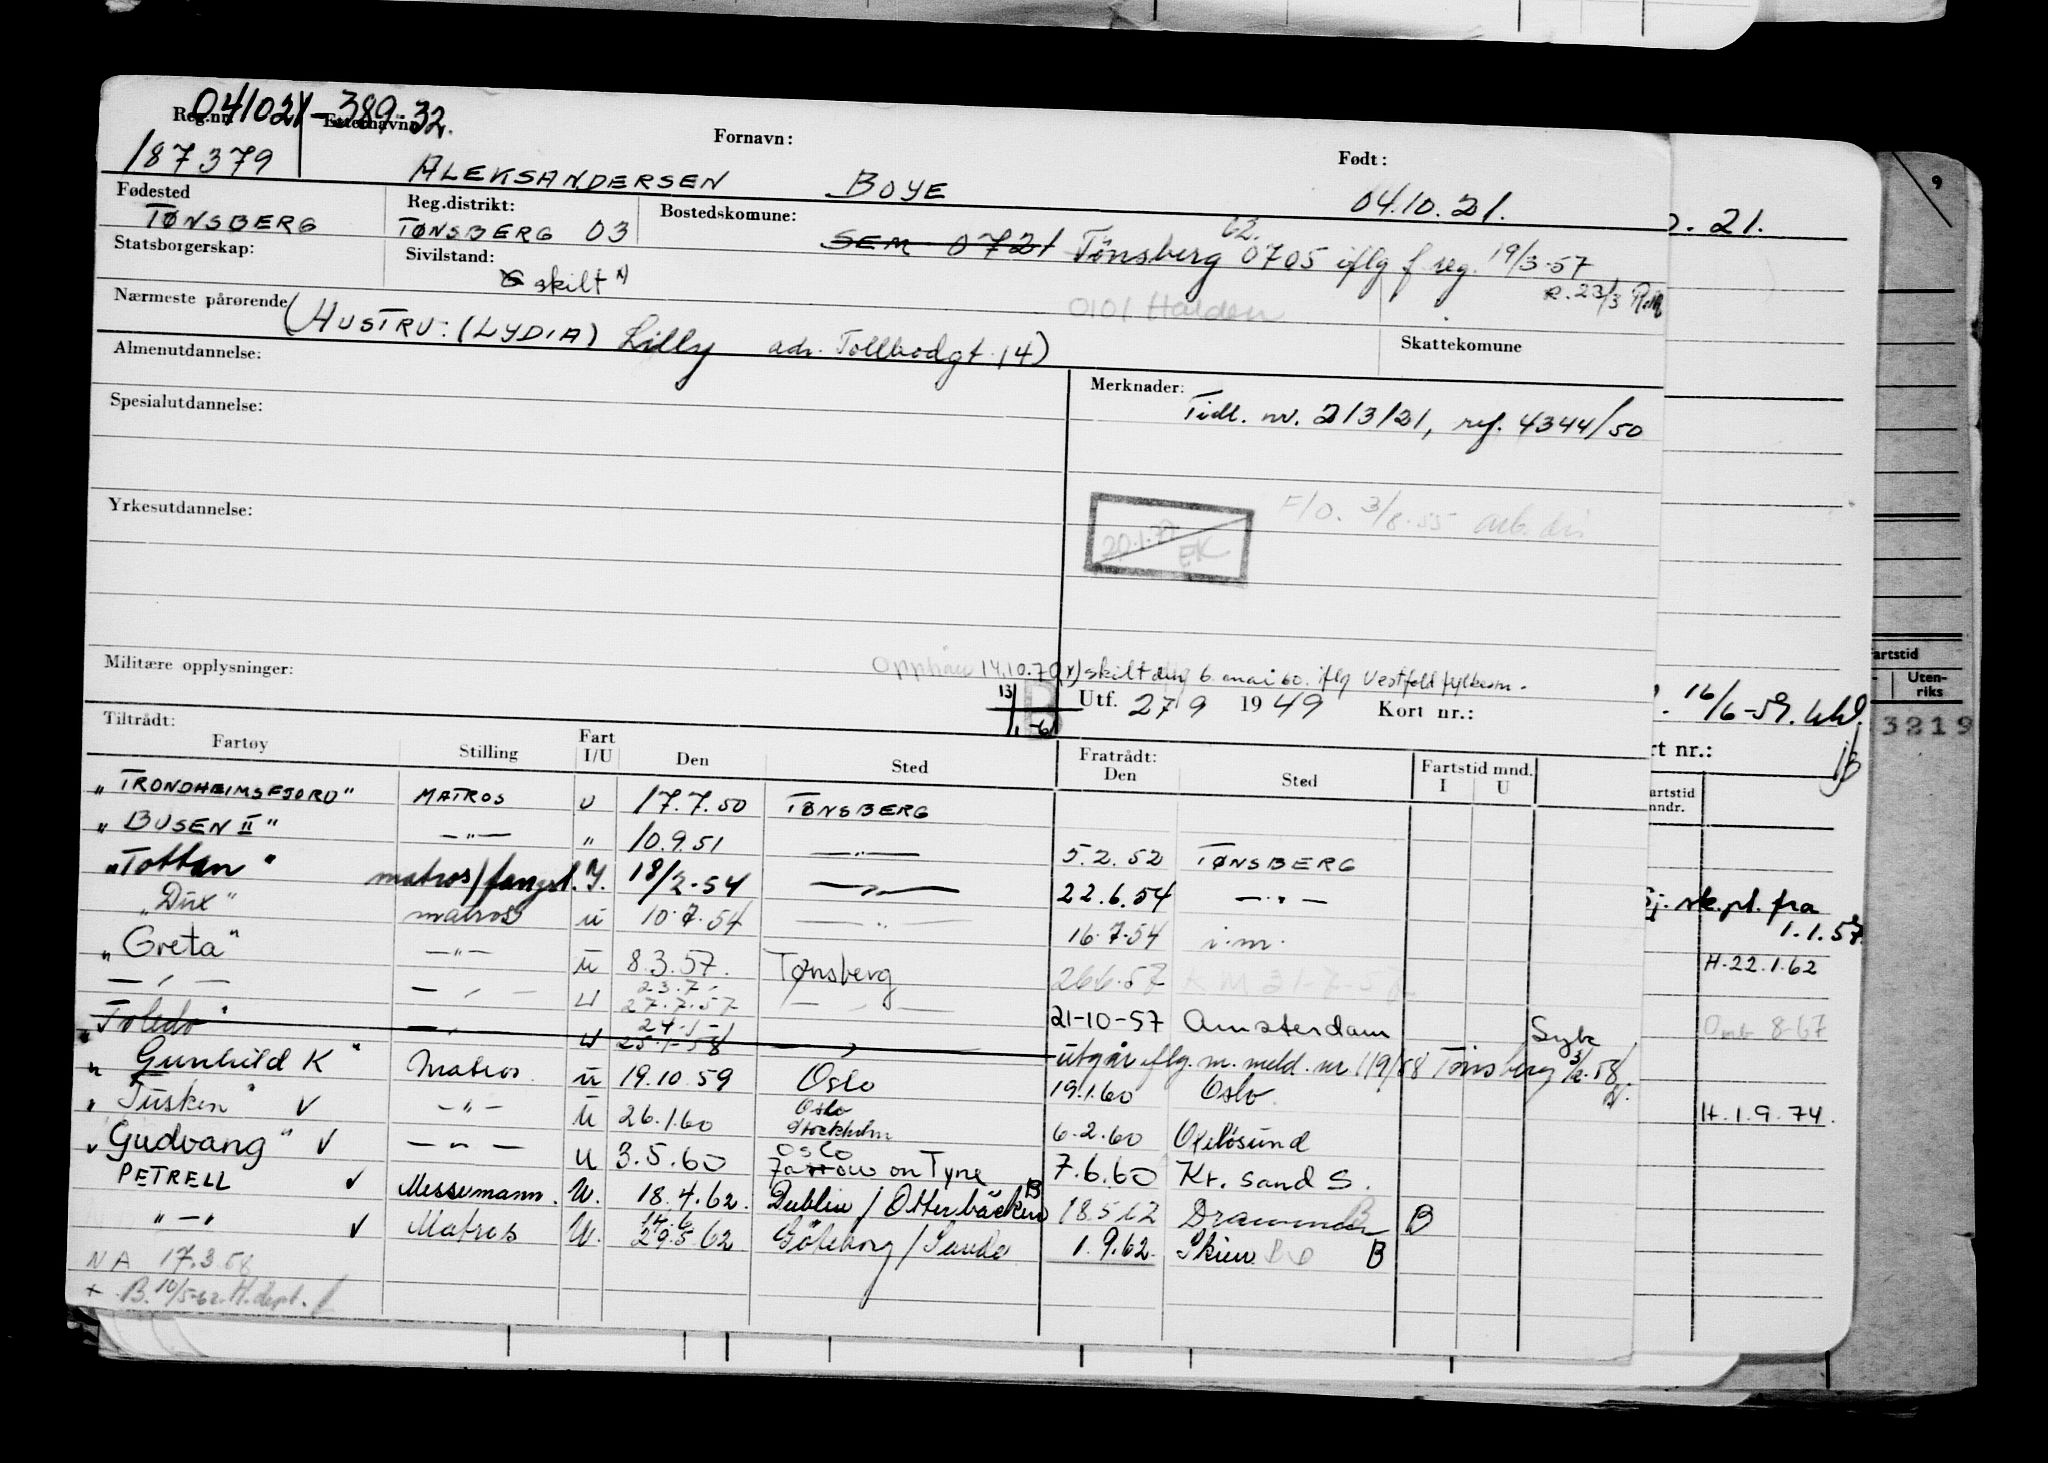 041021-389-32.
Reg.nr. Etternavn: Fornavn: Født:
187379 ALEKSANDERSEN BOYE 04.10.21.
Fødested Reg.distrikt: Bostedskomune:
TØNSBERG TØNSBERG 03 SEM 0721 Tønsberg 62. 0705 iflg f reg. 19/3-57
Statsborgerskap: Sivilstand:
skilt x) R. 23/3
Nærmeste pårørende 0101 Halden
(HUSTRU: (LYDIA) Lilly adr. Tollbodgt. 14)
Almenutdannelse: Skattekomune
Merknader:
Spesialutdannelse: Tidl. nr. 213121, ref. 4344/50
Yrkesutdannelse: F/O. 3/8-55 arb. dir.
20.1.77 EK
Militære opplysninger: 14.10.70 x) skilt den 6. mai 60. iflg Vestfold fylkesm.
13/1-61 Utf. 27 9 1949 Kort nr.:
Tiltrådt: Fratrådt:
Fartøy Stilling Fart I/U Den Sted Den Sted Fartstid mnd. I U
"TRONDHEIMSFJORD" MATROS U 17.7.50 TØNSBERG
"BUSEN II" —"— " 10.9.51 —"— 5.2.52 TØNSBERG
"Tottan" matros/fangst. U. 18/2-54 —"— 22.6.54 —"—
"Dux" matros u 10.7.54 " 16.7.54 i.m.
"Greta" —"— u 8.3.57. Tønsberg 26.6.57
— " — — " — U 23.7. 27.7.57 — " — 21-10-57 Amsterdam Syk
"Toledo" — " — U 24-1- 25-1-58 — " — utgår iflg. m. meld. nr 119/58 Tønsberg 3/2-58
"Gunhild K" Matros u 19.10.59 Oslo 19.1.60 Oslo.
"Tusken" ✓ —"— u 26.1.60 Oslo Stockholm 6.2.60 Oxelösund
"Gudvang" ✓ —"— u 3.5.60 Oslo Jarrow on Tyne 7.6.60 Kr. sand S.
PETRELL ✓ Messemann. U. 18.4.62. Dublin / Otterbäcken B 18.5.62 Drammen B
" — " ✓ Matros U. 14.6 29.5.62 Göteborg / Sauda 1.9.62. Skien B
NA 17.3.58
+ B. 10/5-62 H.dept.
.21.
9
16/6-59.
rt nr.:
artstid mndr.
sj. sk.pl. fra 1.1.57.
H.22.1.62
Omt 8-67
H.1.9.74.
artstid
Uten-riks
3219